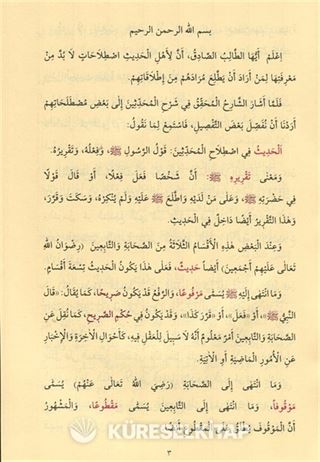 بسم الله الرحمن الرحيم
إِعْلَمْ أَيُّهَا الطَّالِبُ الصَّادِقُ، أَنَّ لِأَهْلِ الْحَدِيثِ اصْطِلَاحَاتٍ لَا بُدَّ مِنْ
مَعْرِفَتِهَا لِمَنْ أَرَادَ أَنْ يَطَّلِعَ مُرَادَهُمْ مِنْ إِطْلَاقَاتِهِمْ.
فَلَمَّا أَشَارَ الشَّارِحُ الْمُحَقِّقُ فِي شَرْحِ الْمُحَدِّثِينَ إِلَى بَعْضِ مُصْطَلَحَاتِهِمْ
أَرَدْنَا أَنْ نُفَصِّلَ بَعْضَ التَّفْصِيلِ، فَاسْتَمِعْ لِمَا نَقُولُ:
اَلْحَدِيثُ فِي اصْطِلَاحِ الْمُحَدِّثِينَ: قَوْلُ الرَّسُولِ ﷺ، وَفِعْلُهُ، وَتَقْرِيرُهُ.
وَمَعْنَى تَقْرِيرِهِ ﷺ: أَنَّ شَخْصًا فَعَلَ فِعْلًا، أَوْ قَالَ قَوْلًا
فِي حَضْرَتِهِ ﷺ، وَعَلَى مَنْ لَدَيْهِ وَاطَّلَعَ ﷺ عَلَيْهِ وَلَمْ يُنْكِرْهُ، وَسَكَتَ وَقَرَّرَ،
وَهٰذَا التَّقْرِيرُ أَيْضًا دَاخِلٌ فِي الْحَدِيثِ.
وَعِنْدَ الْبَعْضِ هٰذِهِ الْأَقْسَامُ الثَّلَاثَةُ مِنَ الصَّحَابَةِ وَالتَّابِعِينَ (رِضْوَانُ اللهِ
تَعَالَى عَلَيْهِمْ أَجْمَعِينَ) أَيْضًا حَدِيثٌ، فَعَلَى هٰذَا يَكُونُ الْحَدِيثُ تِسْعَةَ أَقْسَامٍ.
وَمَا انْتَهَى إِلَيْهِ ﷺ يُسَمَّى مَرْفُوعًا، وَالرَّفْعُ قَدْ يَكُونُ صَرِيحًا، كَمَا يُقَالُ: «قَالَ
النَّبِيُّ ﷺ»، أَوْ «فَعَلَ»، أَوْ «قَرَّرَ كَذَا»، وَقَدْ يَكُونُ فِي حُكْمِ الصَّرِيحِ، كَمَا نُقِلَ عَنِ
الصَّحَابَةِ وَالتَّابِعِينَ أَمْرٌ مَعْلُومٌ أَنَّهُ لَا سَبِيلَ لِلْعَقْلِ فِيهِ، كَأَحْوَالِ الْآخِرَةِ وَالْإِخْبَارِ
عَنِ الْأُمُورِ الْمَاضِيَةِ أَوِ الْآتِيَةِ.
وَمَا انْتَهَى إِلَى الصَّحَابَةِ (رَضِيَ اللهُ تَعَالَى عَنْهُمْ) يُسَمَّى
مَوْقُوفًا، وَمَا انْتَهَى إِلَى التَّابِعِينَ يُسَمَّى مَقْطُوعًا، وَالْمَشْهُورُ
أَنَّ الْمَوْقُوفَ يُطْلَقُ عَلَى الْمَقْطُوعِ أَيْضًا.
KÜRESELKİTAP
٣